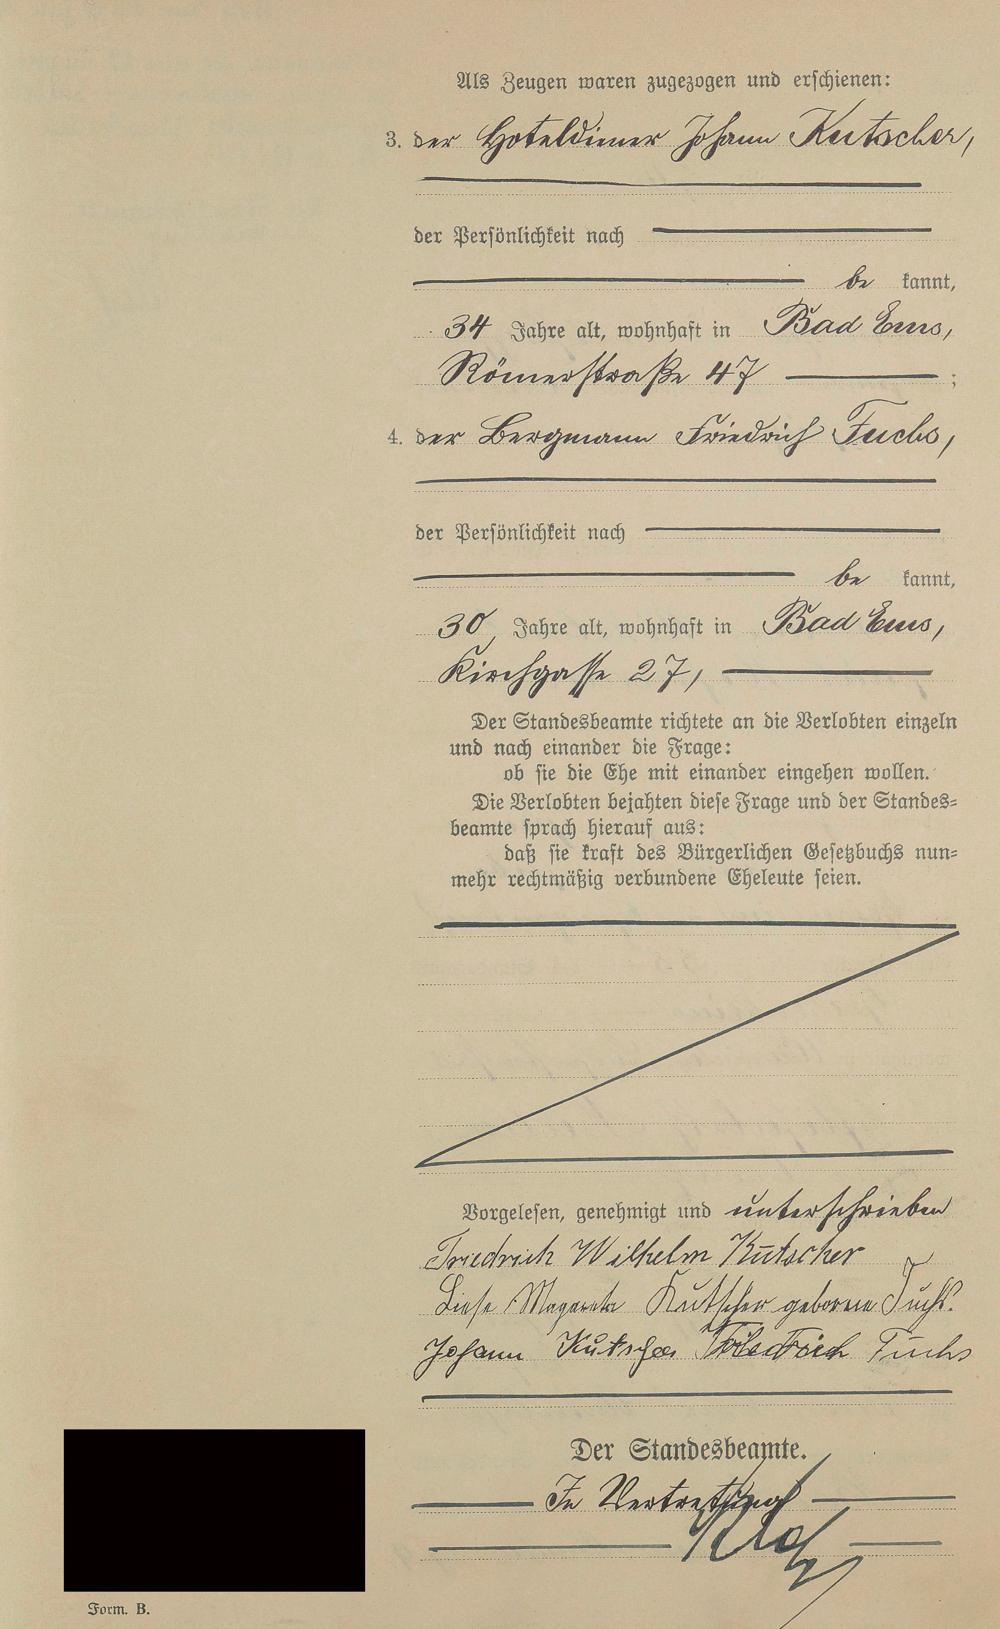 Als Zeugen waren zugezogen und erschienen:
3. der Hoteldiener Johann Kutscher,
der Persönlichkeit nach
be kannt,
34 Jahre alt, wohnhaft in Bad Ems,
Römerstraße 47 ;
4. der Bergmann Friedrich Fuchs,
der Persönlichkeit nach
be kannt,
30, Jahre alt, wohnhaft in Bad Ems,
Kirchgasse 27,
Der Standesbeamte richtete an die Verlobten einzeln
und nach einander die Frage:
ob sie die Ehe mit einander eingehen wollen.
Die Verlobten bejahten diese Frage und der Standes-
beamte sprach hierauf aus:
daß sie kraft des Bürgerlichen Gesetzbuchs nun-
mehr rechtmäßig verbundene Eheleute seien.
Vorgelesen, genehmigt und unterschrieben
Friedrich Wilhelm Kutscher
Liese Magareta Kutscher geborene Fuchs.
Johann Kutscher Friedrich Fuchs
Der Standesbeamte.
In Vertretung
Form. B.